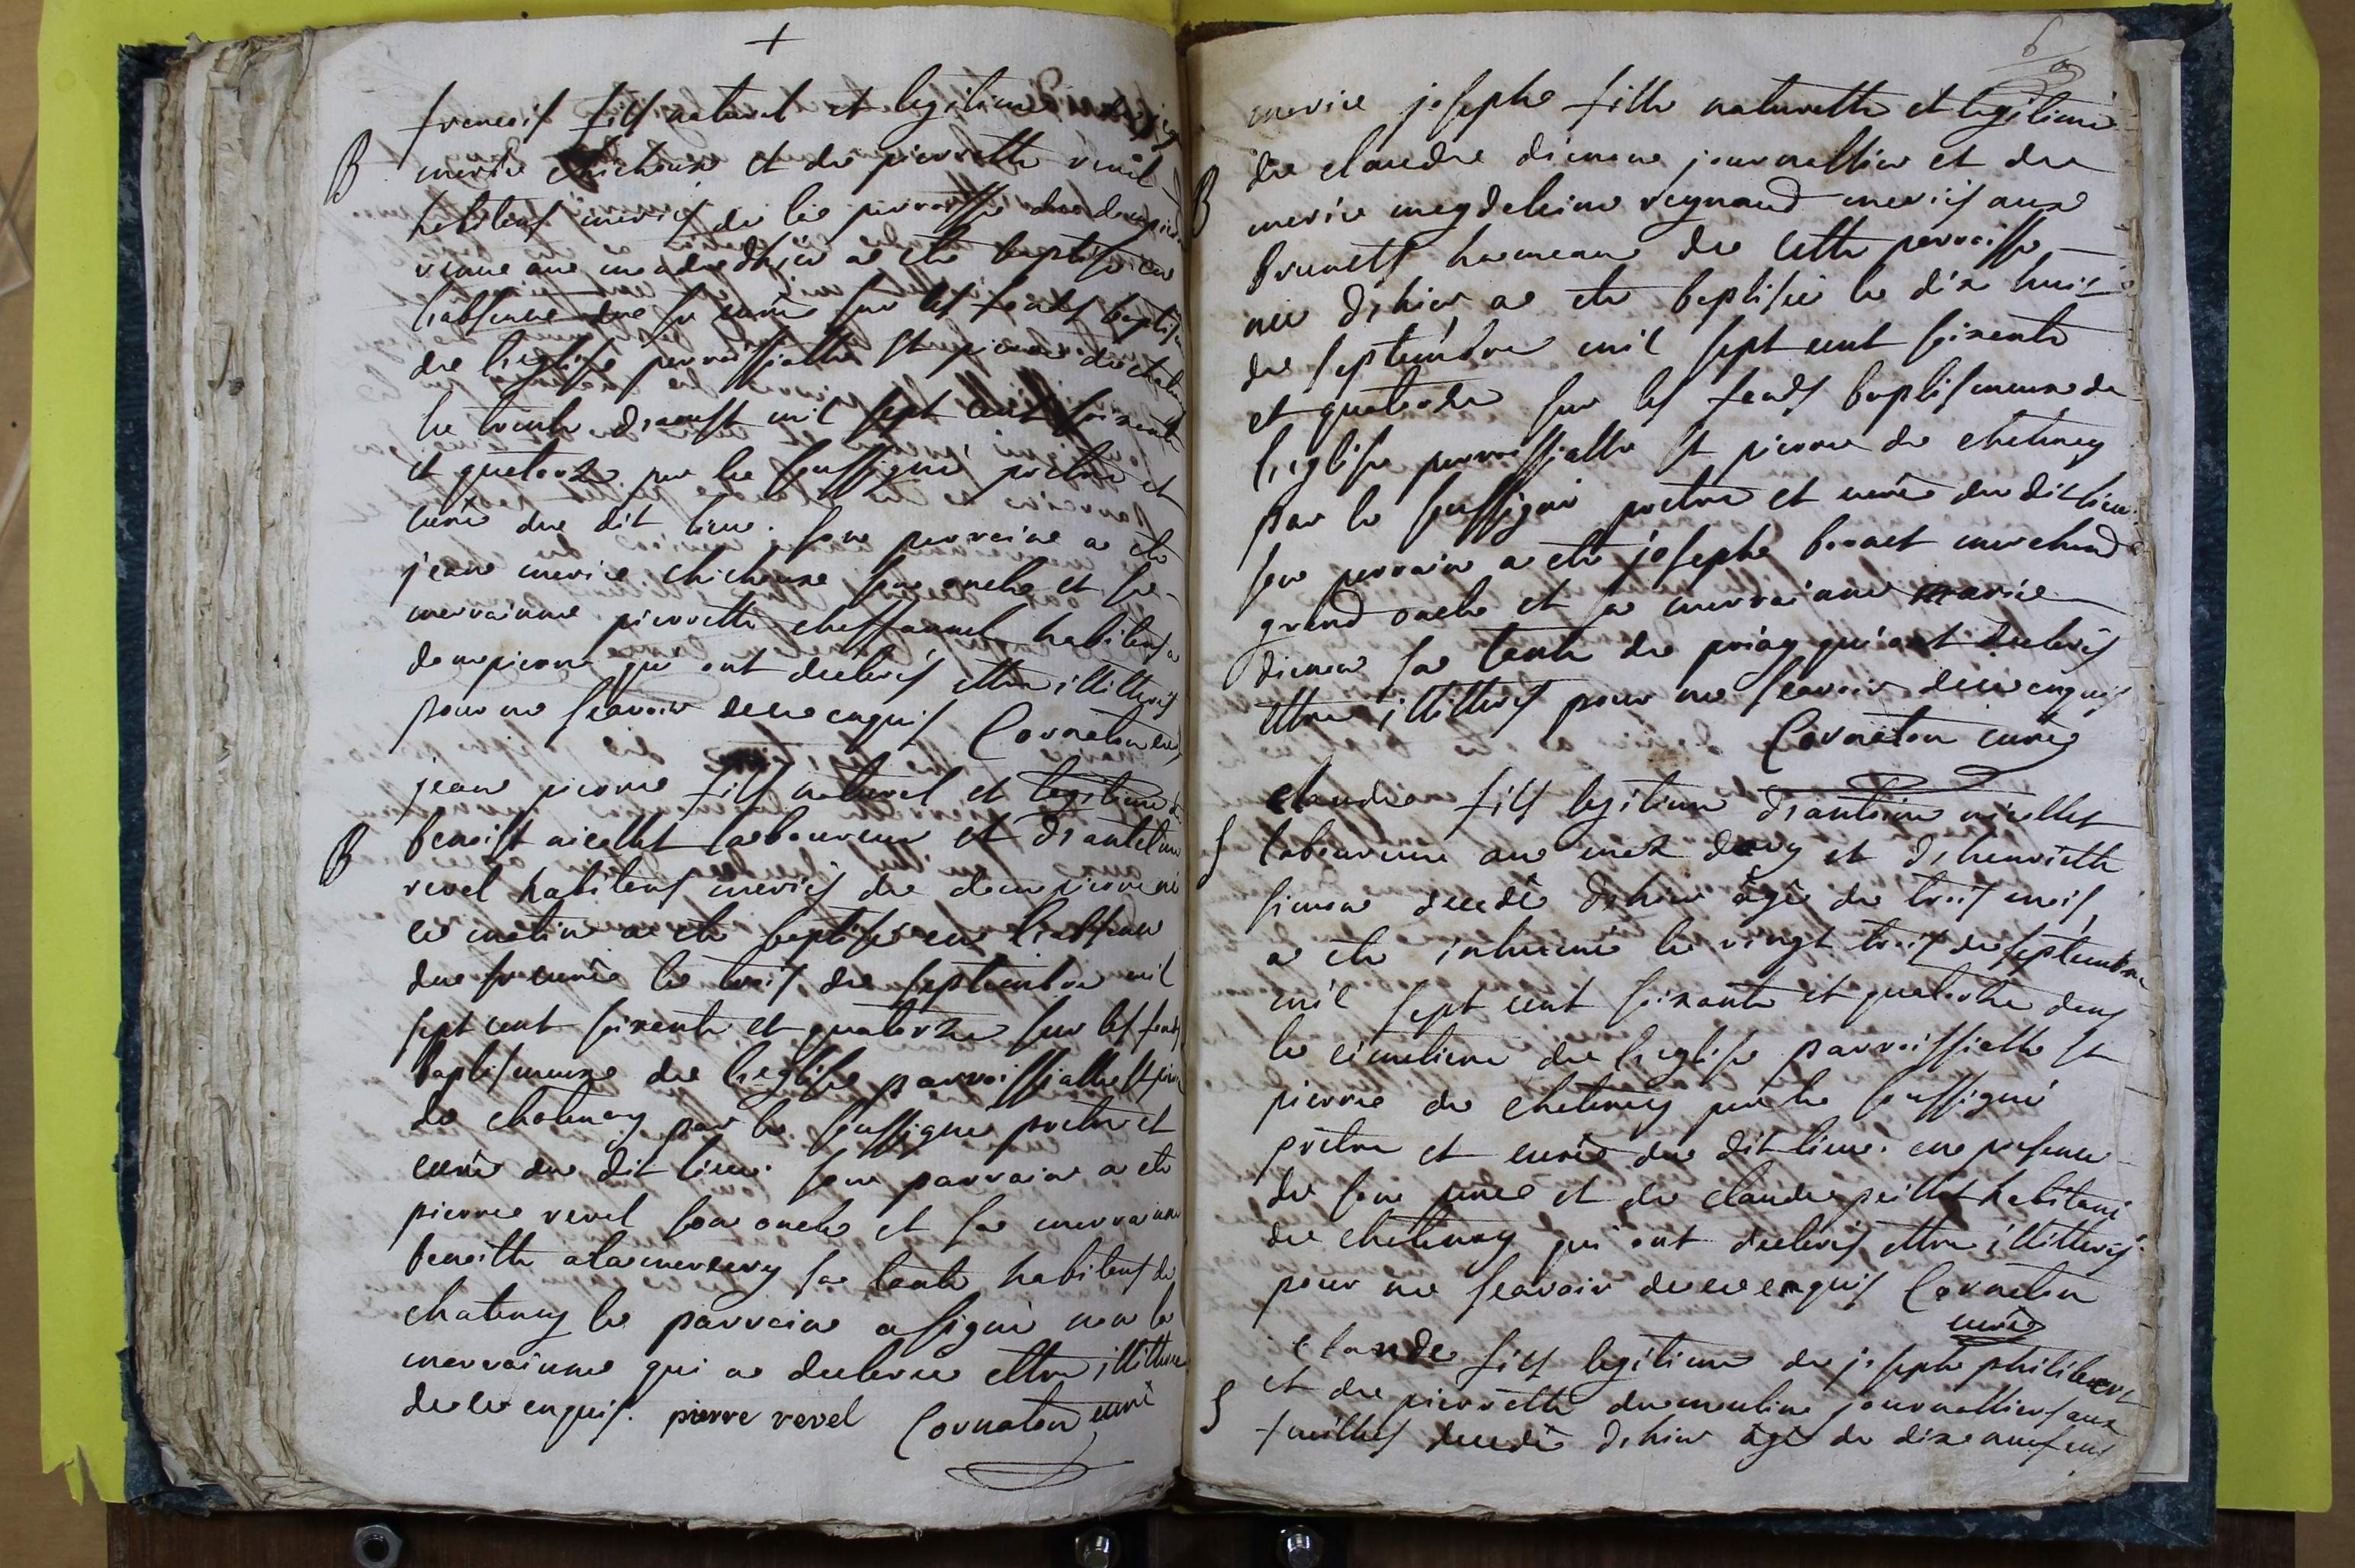 +
francois fils naturel et legitime de jean
B
marie chichoux et de pierrette revel
habitans mariés de la parroisse de dompierre
venue au monde dhier a ete baptisé en
l'absence du sr curé sur les fonds baptis
de l'eglise parroissialle st pierre de chatenay
le trente d'aoust mil sept cent soixante
et quatorze par le soussigné pretre et
curé du dit lieu. son parrain a ete
jean marie chichoux son oncle et sa
marrainne pierrette habitans a
dompierre qui ont declarés ettre illitterés
pour ne scavoir de ce enquis Cornaton curé
jean pierre fils naturel et legitime de
B
benoist nicollet laboureur et d'antelme
revel habitans mariés de dompierre né
ce matin a ete baptisé en l'absence
du sr curé le trois de septembre mil
sept cent soixante et quatorze sur les fonds
baptismeaux de l'eglise parroissialle st pierre
de chatenay par le soussigné pretre et
curé du dit lieu. son parrain a ete
pierre revel son oncle et sa marrainne
benoitte alamercery sa tante habitans de
chatenay le parrain a signé non la
marrainne qui a declarée ettre illitterée
de ce enquis. pierre revel Cornaton curé
6
marie josephe fille naturelle et legitime
de claude journallier et de
B
marie magdeleine reynaud mariés aux
brunets hameau de cette parroisse
née d'hier, a ete baptisée le dix huit
de septembre mil sept cent soixante
et quatorze sur les fonds baptismeaux de
l'eglise parroissialle st pierre de chatenay
par le soussigné pretre et curé du dit lieu
son parrain a ete josephe marchand
grand oncle et sa marrainne marie
sa tante de priay qui ont declarés
ettre illitterés pour ne scavoir de ce enquis
Cornaton curé
claude fils legitime d'antoine nicollet
S
laboureur au et d'henriette
simon decedé d'hier âgé de trois mois,
a ete inhumé le vingt trois de septembre
mil sept cent soixante et quatorze dans
le cimetiere de l'eglise parroissialle st
pierre de chatenay par le soussigné
pretre et curé du dit lieu. en presence
de son pere et de claude peillet habitans
de chatenay qui ont declarés ettre illitterés
pour ne scavoir de ce enquis Cornaton
curé
claude fils legitime de josephe philibert
S
et de pierrette dumoulin journalliers aux
feuilles decedé d'hier âgé de dix neuf ans